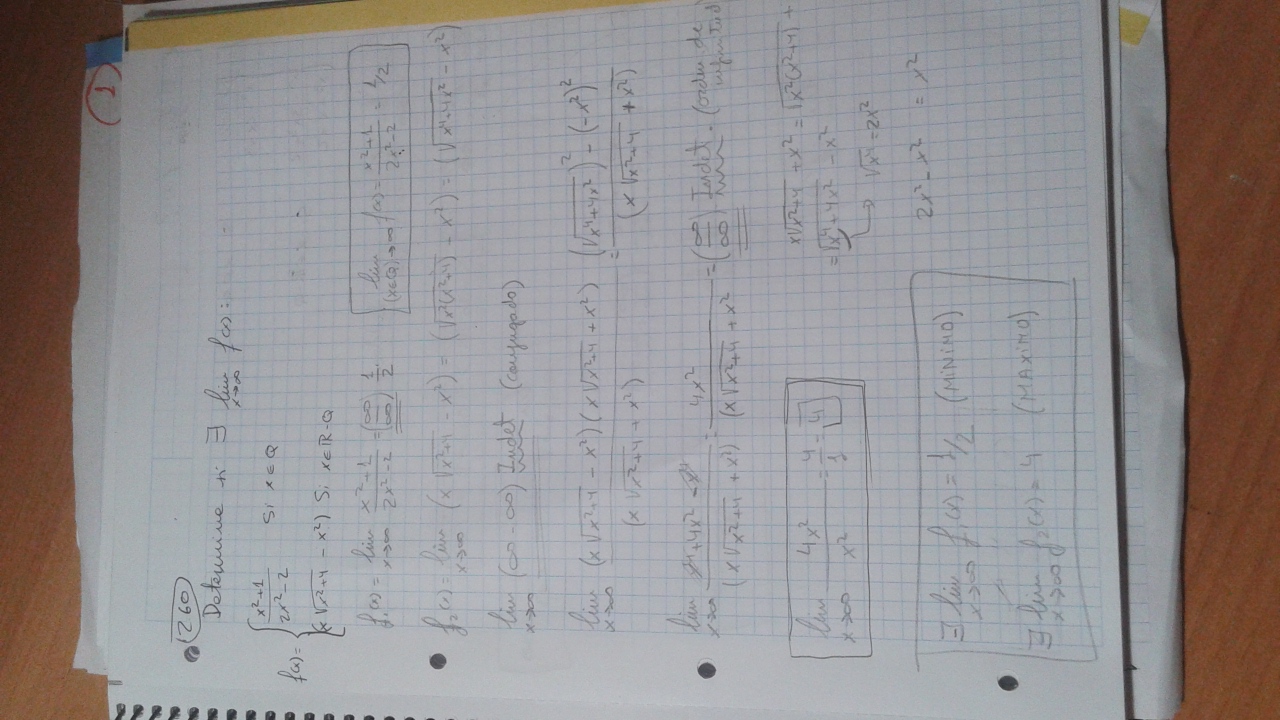 1
260
Determine si ∃ lim x→∞ f(x):
f(x) = { x²+1 / 2x²-2 si x∈Q
(x√x²+4 - x²) Si x∈R-Q
f₁(x) = lim x→∞ x²+1 / 2x²-2 = (∞/∞) 1/2 lim (x∈Q)→∞ f(x) = x²+1 / 2x²-2 = 1/2
f₂(x) = lim x→∞ (x√x²+4 - x²) = (√x²(x²+4) - x²) = (√x⁴+4x² - x²)
lim x→∞ (∞-∞) Indet (conjugado)
lim x→∞ (x√x²+4 - x²)(x√x²+4 + x²) / (x√x²+4 + x²) = (√x⁴+4x²)² - (-x²)² / (x√x²+4 + x²)
lim x→∞ x⁴+4x² - x⁴ / (x√x²+4 + x²) = 4x² / (x√x²+4 + x² = (∞/∞) Indet. (orden de
lim x→∞ 4x² / x² = 4/1 = 4
x√x²+4 + x² = √x²(x²+4) +
= √x⁴+4x² - x²
→ √x⁴ = 2x²
2x² - x² = x²
∃ lim x→∞ f₁(x) = 1/2 (MINIMO)
∃ lim x→∞ f₂(x) = 4 (MAXIMO)